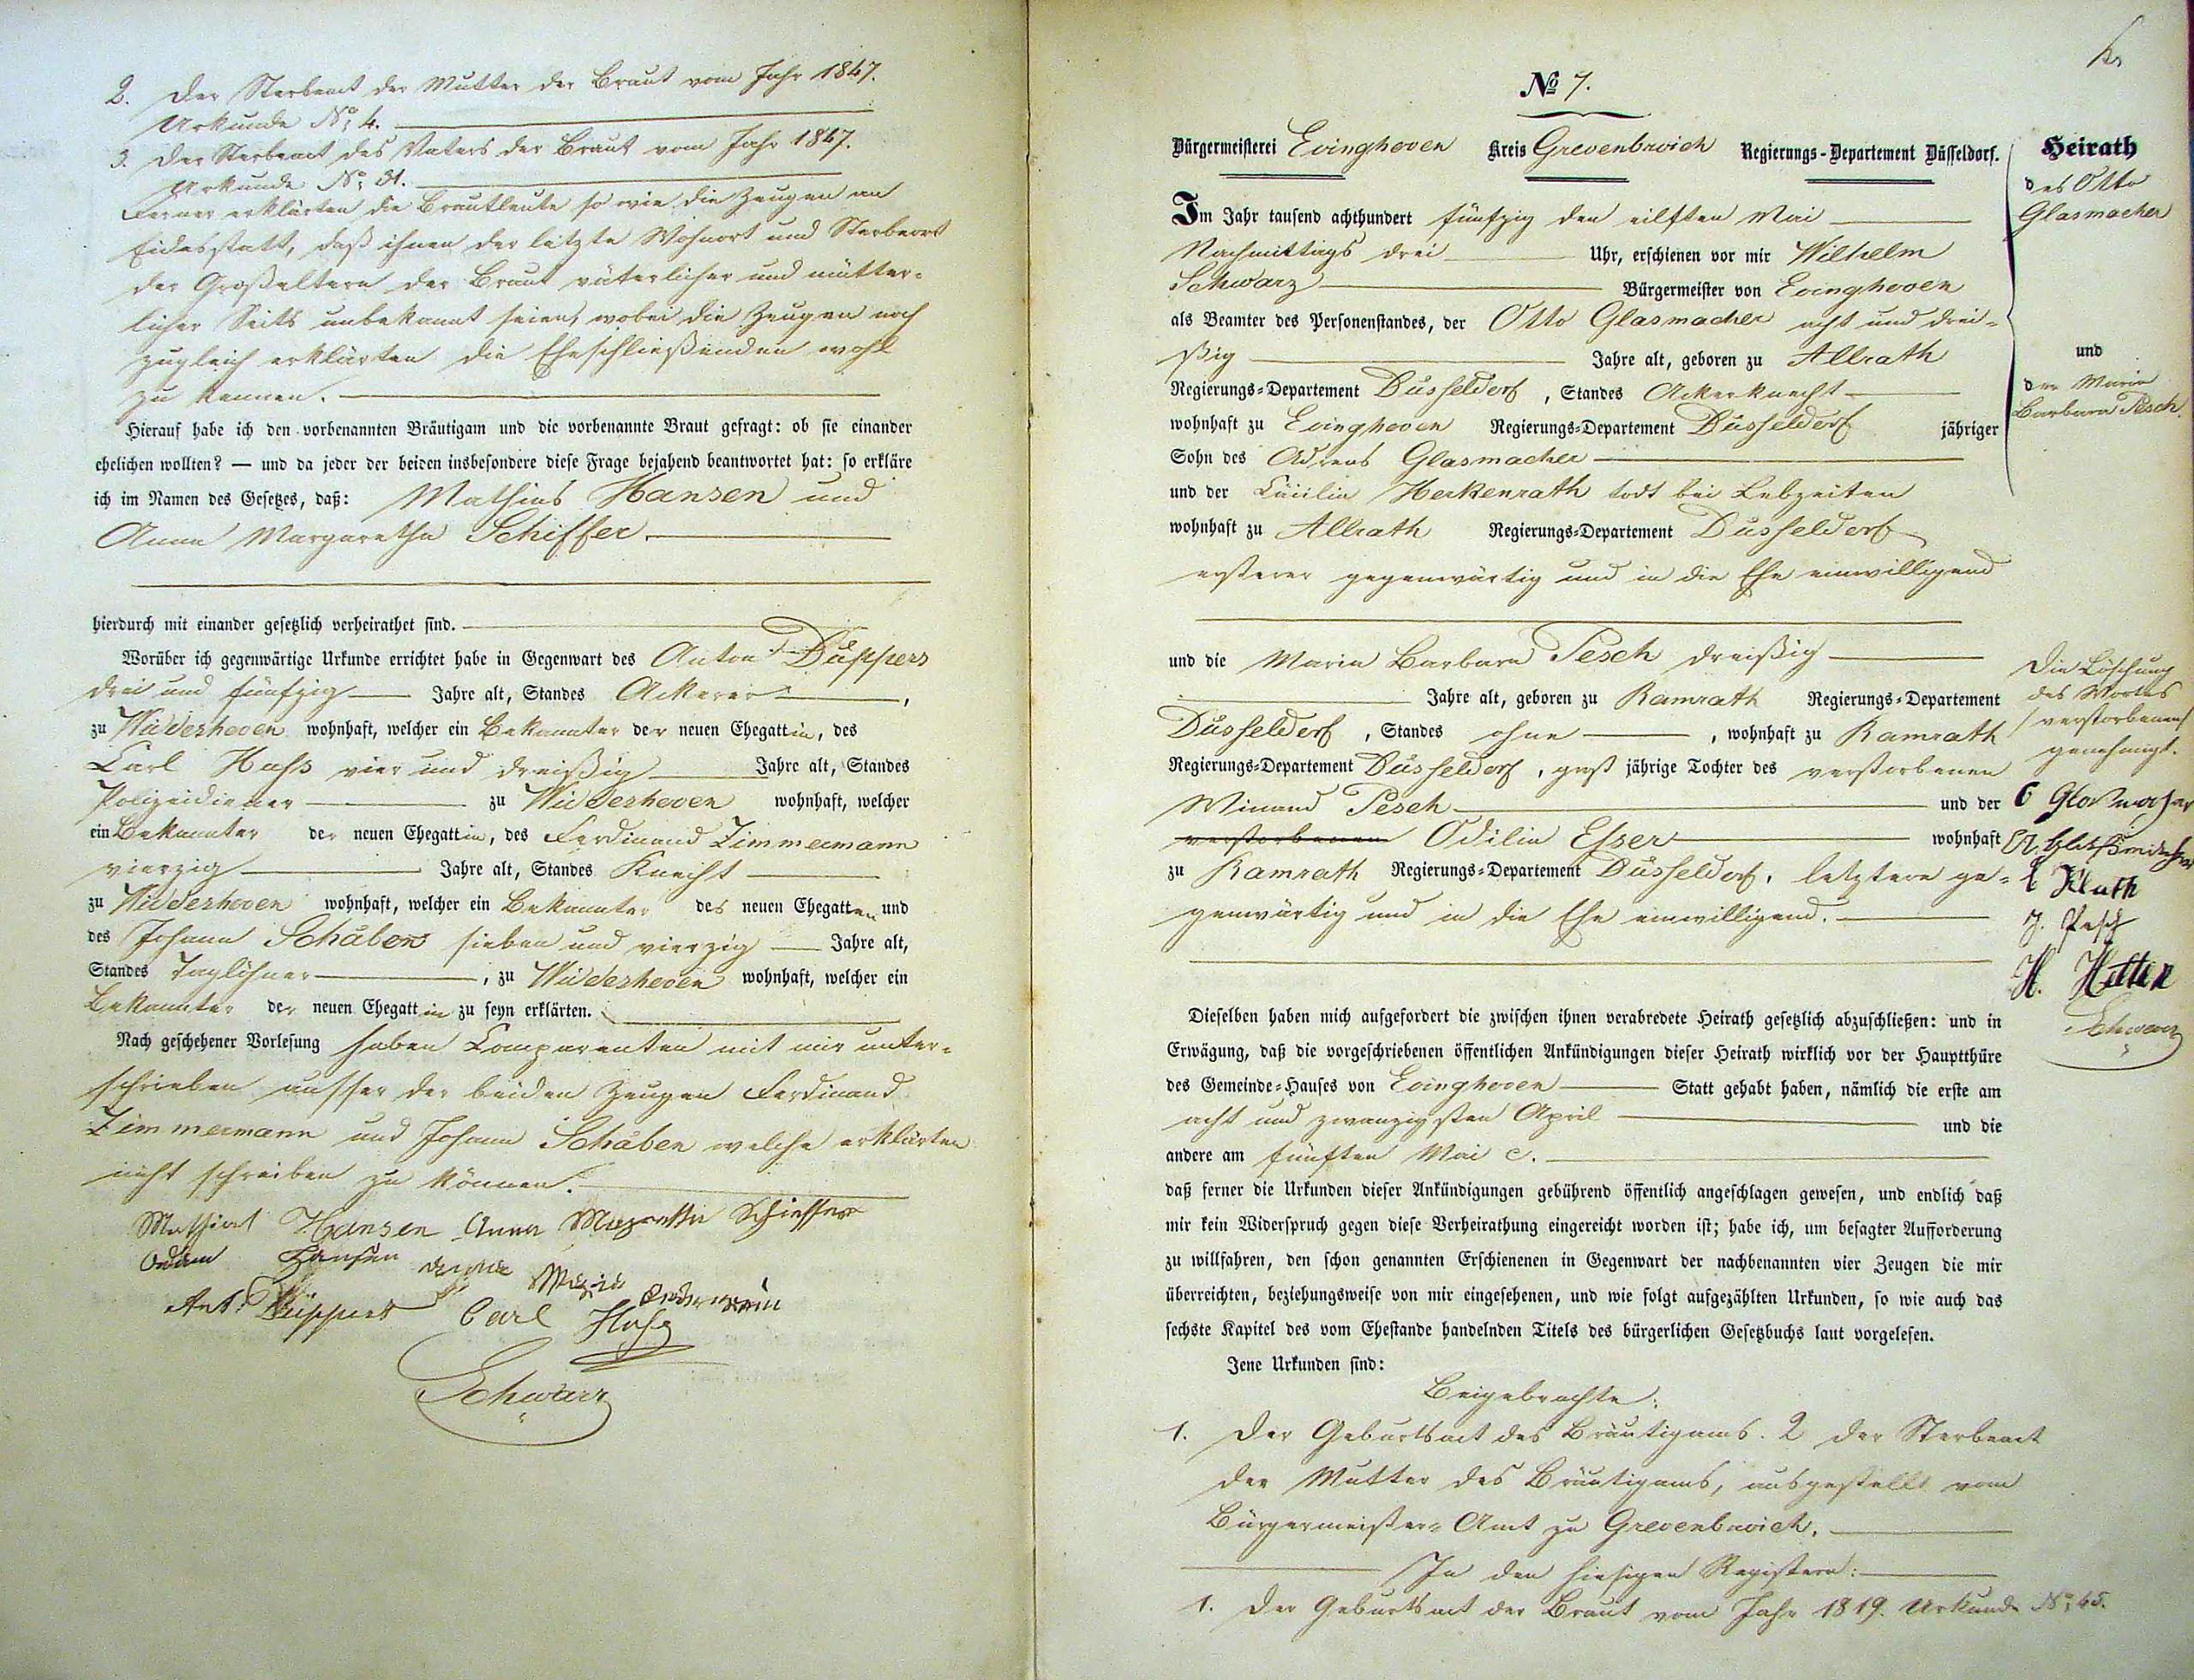 2. Der Sterbeact der Mutter der Braut vom Jahr 1847.
Urkunde No: 4.
3. Der Sterbeact des Vaters der Braut vom Jahr 1847.
Urkunde No: 31.
Ferner erklärten die Brautleute so wie die Zeugen an
Eidesstatt, daß ihnen der letzte Wohnort und Sterbeort
der Großeltern der Braut väterlicher und mütter-
licher Seits unbekannt seien, wobei die Zeugen noch
zugleich erklärten die Eheschließenden wohl
zu kennen.
Hierauf habe ich den vorbenannten Bräutigam und die vorbenannte Braut gefragt: ob sie einander
ehelichen wollten? — und da jeder der beiden insbesondere diese Frage bejahend beantwortet hat: so erkläre
ich im Namen des Gesetzes, daß: Mathias Hansen und
Anna Margaretha Schiffer.
hierdurch mit einander gesetzlich verheirathet sind.
Worüber ich gegenwärtige Urkunde errichtet habe in Gegenwart des Anton Düppers
drei und fünfzig Jahre alt, Standes Ackerer,
zu Widdeshoven wohnhaft, welcher ein Bekannter der neuen Ehegattin, des
Carl Hass vier und dreißig Jahre alt, Standes
Polizeidiener zu Widdeshoven wohnhaft, welcher
ein Bekannter der neuen Ehegattin, des Ferdinand Zimmermann
vierzig Jahre alt, Standes Knecht
zu Widdeshoven wohnhaft, welcher ein Bekannter des neuen Ehegatten und
des Johann Schäben sieben und vierzig Jahre alt,
Standes Taglöhner, zu Widdeshoven wohnhaft, welcher ein
Bekannter der neuen Ehegattin zu seyn erklärten.
Nach geschehener Vorlesung haben Comparenten mit mir unter-
schrieben ausser der beiden Zeugen Ferdinand
Zimmermann und Johann Schäben welche erklärten
nicht schreiben zu können.
Mathias Hansen Anna Margretha Schieffer
Adam Hansen
Ant. Düppers Carl Hass
Schwarz
No 7.
Bürgermeisterei Evinghoven Kreis Grevenbroich Regierungs-Departement Düsseldorf.
Im Jahr tausend achthundert fünfzig den eilften Mai
Nachmittags drei Uhr, erschienen vor mir Wilhelm
Schwarz Bürgermeister von Evinghoven
als Beamter des Personenstandes, der Otto Glasmacher acht und drei-
ßig Jahre alt, geboren zu Allrath
Regierungs-Departement Düsseldorf, Standes Ackerknecht
wohnhaft zu Evinghoven Regierungs-Departement Düsseldorf jähriger
Sohn des Glasmacher
und der Cäcilia Herkenrath todt bei Lebzeiten
wohnhaft zu Allrath Regierungs-Departement Düsseldorf
ersterer gegenwärtig und in die Ehe einwilligend
und die Maria Barbara Pesch dreißig
Jahre alt, geboren zu Ramrath Regierungs-Departement
Düsseldorf, Standes ohne, wohnhaft zu Ramrath
Regierungs-Departement Düsseldorf, groß jährige Tochter des verstorbenen
Winand Pesch und der
verstorbenen Odilia Esser wohnhaft
zu Ramrath Regierungs-Departement Düsseldorf, letztere ge-
genwärtig und in die Ehe einwilligend.
Dieselben haben mich aufgefordert die zwischen ihnen verabredete Heirath gesetzlich abzuschließen: und in
Erwägung, daß die vorgeschriebenen öffentlichen Ankündigungen dieser Heirath wirklich vor der Hauptthüre
des Gemeinde-Hauses von Evinghoven Statt gehabt haben, nämlich die erste am
acht und zwanzigsten April und die
andere am fünften Mai c.
daß ferner die Urkunden dieser Ankündigungen gebührend öffentlich angeschlagen gewesen, und endlich daß
mir kein Widerspruch gegen diese Verheirathung eingereicht worden ist; habe ich, um besagter Aufforderung
zu willfahren, den schon genannten Erschienenen in Gegenwart der nachbenannten vier Zeugen die mir
überreichten, beziehungsweise von mir eingesehenen, und wie folgt aufgezählten Urkunden, so wie auch das
sechste Kapitel des vom Ehestande handelnden Titels des bürgerlichen Gesetzbuchs laut vorgelesen.
Jene Urkunden sind:
Beigebrachte:
1. Der Geburtsact des Bräutigams. 2 Der Sterbeact
der Mutter des Bräutigams, ausgestellt vom
Bürgermeister-Amt zu Grevenbroich.
In den hiesigen Registern:
1. Der Geburtsact der Braut vom Jahr 1819. Urkunde No: 45.
Heirath
des Otto
Glasmacher
und
der Maria
Barbara Pesch.
Die Löschung
des Wortes
"verstorbenen"
genehmigt.
O Glasmacher
J. Pesch
H. Hetten
Schwarz